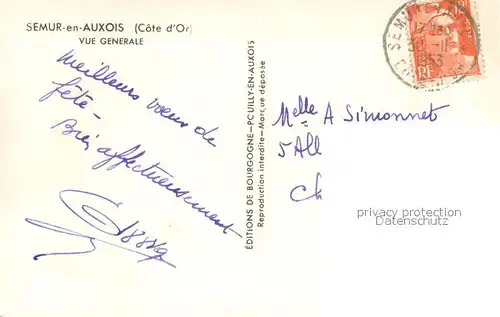 SEMUR-en-AUXOIS (Côte d'Or)
VUE GENERALE
Meilleurs vœux de
fête -
Bien affectueusement
ÉDITIONS DE BOURGOGNE—POUILLY-EN-AUXOIS
Reproduction interdite—Marque déposée
SEMUR
1953
RF
Melle A Simonnet
5 All
Ch
privacy protection
Datenschutz